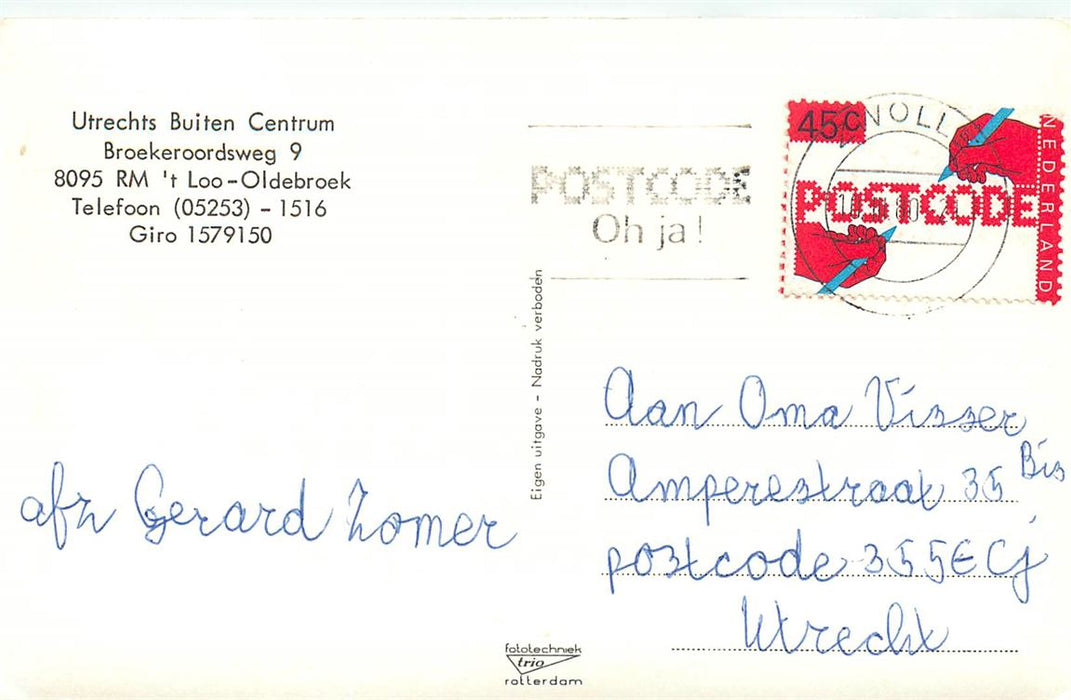 Utrechts Buiten Centrum
Broekeroordsweg 9
8095 RM 't Loo-Oldebroek
Telefoon (05253) - 1516
Giro 1579150
POSTCODE
Oh ja!
45c
POSTCODE
NEDERLAND
Eigen uitgave - Nadruk verboden
afz Gerard Zomer
Aan Oma Visser
Amperestraat 35 Bis
postcode 355E Cj
Utrecht
fototechniek
trio
rotterdam